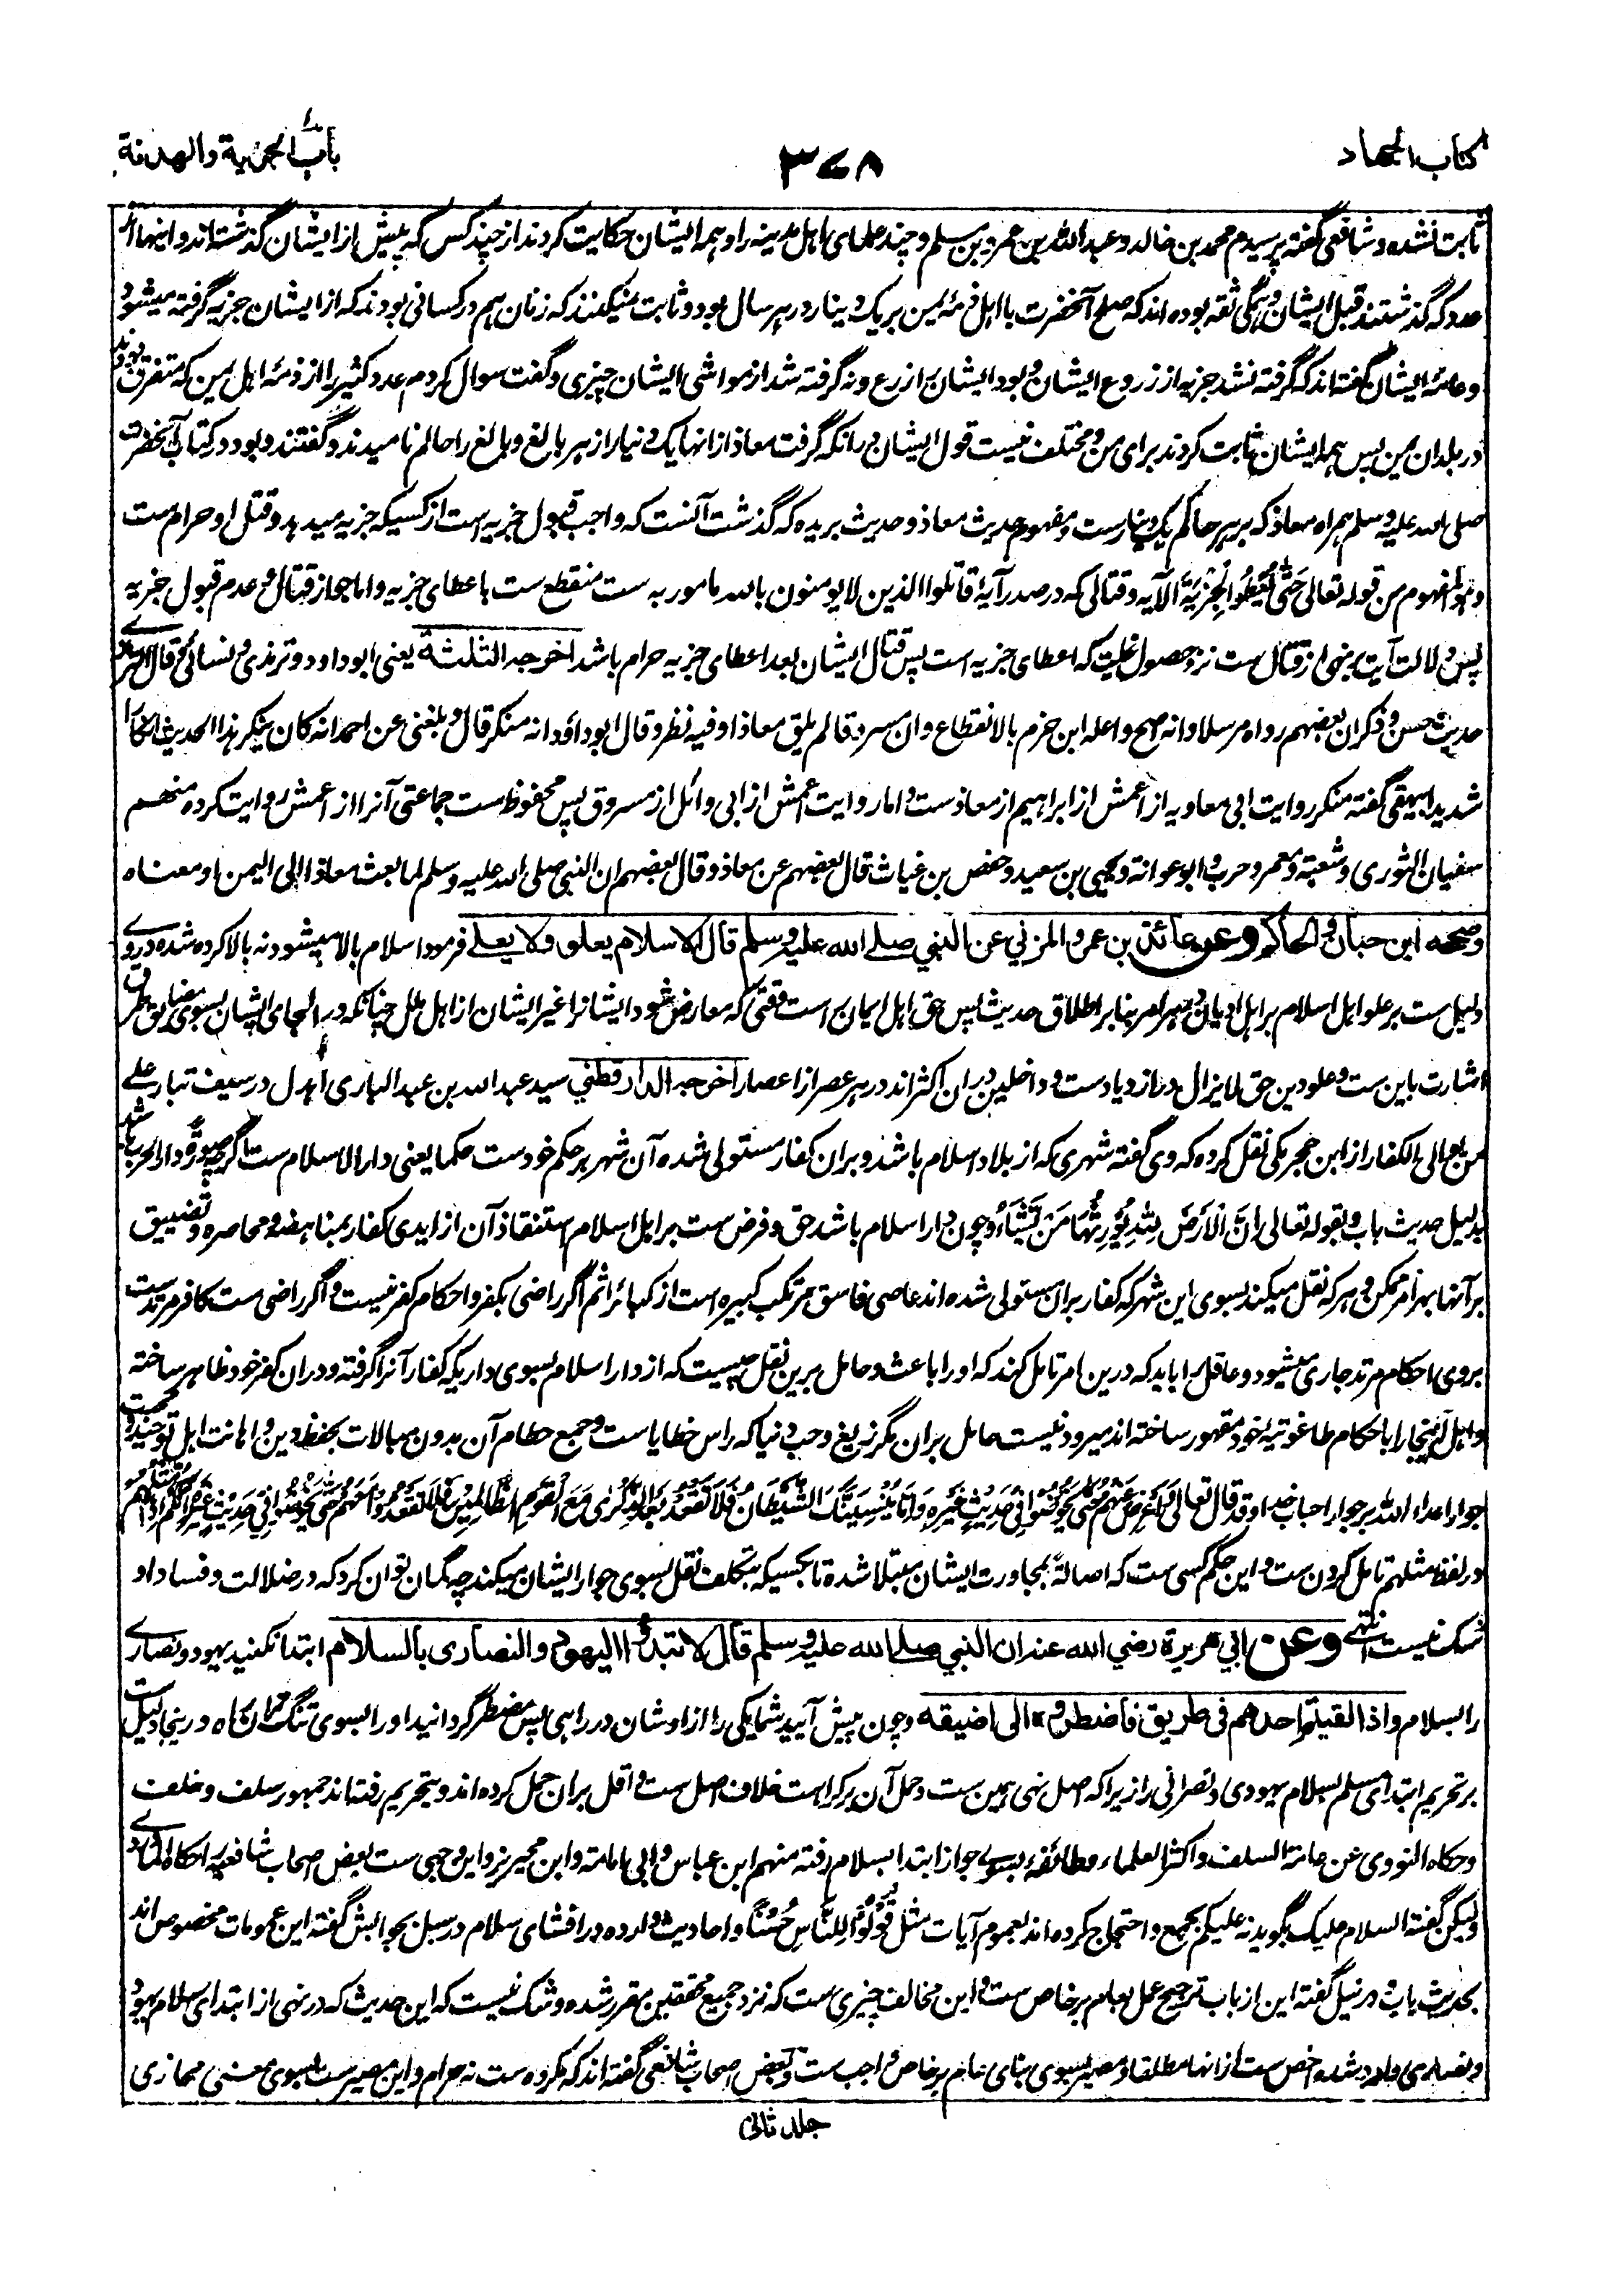 کتاب الجهاد
۳۷۸
باب الجزیة والهدنة
ثابت نشده و شافعی گفته پرسیدم محمد بن خالد و عبد الله بن عمرو بن مسلم و چند علمای اهل مدینه را و همه ایشان حکایت کردند از چند کس که پیش از ایشان گذشته اند و اینها از
عدد که گذشتند قبل ایشان و همگی ثقه بوده اند که صلح آنحضرت با اهل ذمهٔ یمن بر یک دینار در هر سال بود و ثابت نمیکنند که زنان هم در کسانی بودند که از ایشان جزیه گرفته میشود
و عامهٔ ایشان گفته اند که گرفته نشد جزیه از زروع ایشان و بود ایشان را زرع و نه گرفته شد از مواشی ایشان چیزی و گفت سوال کردم عدد کثیر را از ذمهٔ اهل یمن که متفرق بودند
در بلدان یمن پس همه ایشان ثابت کردند برای من و مختلف نیست قول ایشان درانکه گرفت معاذ از انها یک دینار از هر بالغ و بالغ را حالم نامیدند و گفتند و بود در کتاب آنحضرت
صلی الله علیه وسلم همراه معاذ که بر هر حالم یک دینارست و مفهوم حدیث معاذ و حدیث بریده که گذشت آنست که واجب قبول جزیه است از کسیکه جزیه میدهد و قتل او حرام ست
و هو المفهوم من قوله تعالی حَتّٰی یُعْطُوا الْجِزْیَةَ الآیه و قتالی که در صدر آیه قاتلوا الذین لا یومنون بالله مامور به ست منقطع ست باعطای جزیه و اما جواز قتال و عدم قبول جزیه
پس دلالت آیت بر نهی از قتال ست نزد حصول غایت که اعطای جزیه است پس قتال ایشان بعد اعطای جزیه حرام باشد اخرجه الثلثة یعنی ابو داود و ترمذی و نسائی و قال الترمذی
حدیث حسن و ذکر ان بعضهم رواه مرسلا و انه اصح و اعله ابن حزم بالانقطاع و ان مسروقا لم یلق معاذا و فیه نظر و قال ابو داؤد انه منکر قال و بلغنی عن احمد انه کان ینکر هذا الحدیث انکارا
شدیدا بیهقی گفته منکر روایت ابی معاویه از اعمش از ابراهیم از معاذ ست و اما روایت اعمش از ابی وائل از مسروق پس محفوظ ست جماعتی آنرا از اعمش روایت کرده منهم
سفیان الثوری و شعبة و معمر و حرب و ابو عوانة و یحیی بن سعید و حفص بن غیاث قال بعضهم عن معاذ و قال بعضهم ان النبی صلی الله علیه وسلم لما بعث معاذا الی الیمن او معناه
وصححه ابن حبان و الحاکم وعن عائذ بن عمرو المزني عن النبي صلے الله علیه وسلم قال الاسلام یعلو ولا یعلے فرمود اسلام بالا میشود نه بالا کرده شده در وے
دلیل ست بر علو اهل اسلام بر اهل ادیان در هر امر بنابر اطلاق حدیث پس حق اهل ایمان راست وقتی که معارض شود ایشانرا غیر ایشان از اهل ملل چنانکه در الجای ایشان بسوی مضایق طرق
اشارت باین ست و علو دین حق لا یزال در ازدیاد ست و داخلین دران اکثر اند در هر عصر از اعصار اخرجه الدارقطني سید عبد الله بن عبد الباری اهدل در سیف تبار علے
من یوالی الکفار از ابن حجر مکی نقل کرده که وی گفته شهری که از بلاد اسلام باشد و بران کفار مستولی شده آن شهر بر حکم خودست حکما یعنی دار الاسلام ست اگرچه صورةً دار الحرب باشد
بدلیل حدیث باب و بقوله تعالی اِنَّ الْاَرْضَ لِلّٰهِ یُوْرِثُهَا مَنْ یَّشَآءُ و چون دار اسلام باشد حق و فرض ست بر اهل اسلام استنقاذ آن از ایدی کفار بمناهضه و محاصره و تضییق
بر آنها بهر امر ممکن و هر که نقل میکند بسوی این شهر که کفار بران مستولی شده اند عاصی فاسق مرتکب کبیره است از کبائر اثم اگر راضی بکفر و احکام کفر نیست و اگر راضی ست کافر مرتد ست
بروی احکام مرتد جاری میشود و عاقل را باید که درین امر تامل کند که او را باعث و حامل برین نقل چیست که از دار اسلام بسوی داریکه کفار آنرا گرفته و دران کفر خود ظاهر ساخته
و اهل آنجا را باحکام طاغوتیه خود مقهور ساخته اند میرود نیست حامل بران مگر زیغ و حب دنیا که راس خطایاست و جمع حطام آن بدون مبالات بحفظ دین و اهانت اهل توحید و محبت
جوار اعداء الله بر جوار احباب خدا و قد قال تعالی فَاَعْرِضْ عَنْهُمْ حَتّٰی یَخُوْضُوْا فِيْ حَدِیْثٍ غَیْرِهٖ وَاِمَّا یُنْسِیَنَّكَ الشَّیْطَانُ فَلَا تَقْعُدْ بَعْدَ الذِّكْرٰی مَعَ الْقَوْمِ الظّٰالِمِیْنَ فَلَا تَقْعُدُوْا مَعَهُمْ حَتّٰی یَخُوْضُوْا فِيْ حَدِیْثٍ غَیْرِهٖ اِنَّكُمْ اِذًا مِّثْلُهُمْ
در لفظ مثلهم تامل کردن ست و این حکم کسی ست که اصالةً بمجاورت ایشان مبتلا شده تا بکسیکه بتکلف نقل بسوی جوار ایشان میکند چه گمان توان کرد که در ضلالت و فساد او
شک نیست انتهے وعن ابي هریرة رضي الله عنه ان النبي صلے الله علیه وسلم قال لا تبدؤا الیهود والنصاری بالسلام ابتدا نکنید یهود و نصارے
را بسلام واذا لقیتم احدهم في طریق فاضطروه الی اضیقه و چون پیش آیید شما یکی را از اوشان در راهی پس مضطر گردانید او را بسوی تنگ تر ان راه درینجا دلیل ست
بر تحریم ابتدای مسلم بسلام یهودی و نصرانی را زیرا که اصل نهی همین ست و حمل آن بر کراهت خلاف اصل ست و اقل بران حمل کرده اند و بتحریم رفته اند جمهور سلف و خلف
و حکاه النووی عن عامة السلف و اکثر العلماء و طائفه بسوی جواز ابتدا بسلام رفته منهم ابن عباس و ابی امامة و ابن محیریز و این وجهی ست بعض اصحاب شافعیه را حکاه الماوردے
و لیکن گفته السلام علیک بگوید نه علیکم بجمع و احتجاج کرده اند بعموم آیات مثل قُوْلُوْا لِلنَّاسِ حُسْنًا و احادیث وارده در افشای سلام در سبل بجوابش گفته این عمومات مخصوص اند
بحدیث باب و در نیل گفته این از باب ترجیح عمل بعام بر خاص ست و این مخالف چیزی ست که نزد جمیع محققین مقرر شده و شک نیست که این حدیث که در نهی از ابتدای سلام یهود
و نصاری وارد شده اخص ست از انها مطلقا و مصیر بسوی بنای عام بر خاص واجب ست و بعض اصحاب شافعی گفته اند که مکروه ست نه حرام و این مصیر ست بسوی معنی مجازی
جلد ثانی